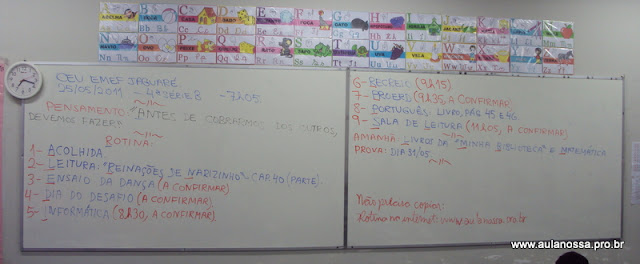 CEU EMEF JAGUARÉ.
25/05/2011 - 4ª SÉRIE B - 7h05.
PENSAMENTO: "ANTES DE COBRARMOS DOS OUTROS,
DEVEMOS FAZER".
ROTINA:
1- ACOLHIDA.
2- LEITURA: "REINAÇÕES DE NARIZINHO" - CAP. 40 (PARTE).
3- ENSAIO DA DANÇA (A CONFIRMAR)
4- DIA DO DESAFIO (A CONFIRMAR)
5- INFORMÁTICA (8h30, A CONFIRMAR)
6- RECREIO (9h15)
7- PROERD (9h35, A CONFIRMAR)
8- PORTUGUÊS: LIVRO, PÁG 45 E 46.
9- SALA DE LEITURA (11h05, A CONFIRMAR)
AMANHÃ: LIVROS DA "MINHA BIBLIOTECA" E MATEMÁTICA
PROVA: DIA 31/05.
Não precisa copiar:
Rotina na internet: www.aulanossa.pro.br
www.aulanossa.pro.br